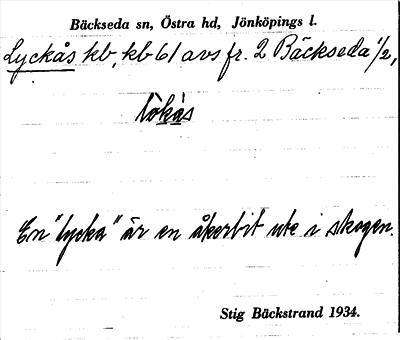 Bäckseda sn, Östra hd, Jönköpings l.
Lyckås kb, kb 61 avs fr. 2 Bäckseda 1/2,
lòkàs
En "lycka" är en åkerbit ute i skogen.
Stig Bäckstrand 1934.